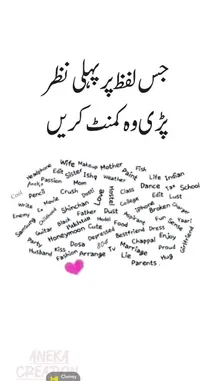 جس لفظ پر پہلی نظر
پڑی وہ کمنٹ کریں
Wife Makeup Mother
Headphone Edit Sister Ishq Weather Paint Fish Life Indian
Passion Mom Dance School
Pencil Crush Love Hostel Class Edit Lust
Write Movie Shinchan College Iphone Broken Burger
Enemy Childhood Father Dust Fun Sense
Samsung Guitar Black Cute Model Food Dress Enjoy
Honeymoon Depressed Bestfriend Chappal Proud Girlfriend
Party Kiss Dosa God Tv Marriage House
Husband Fashion Arrange Lie Hug
Parents
ANEKA
CREATION